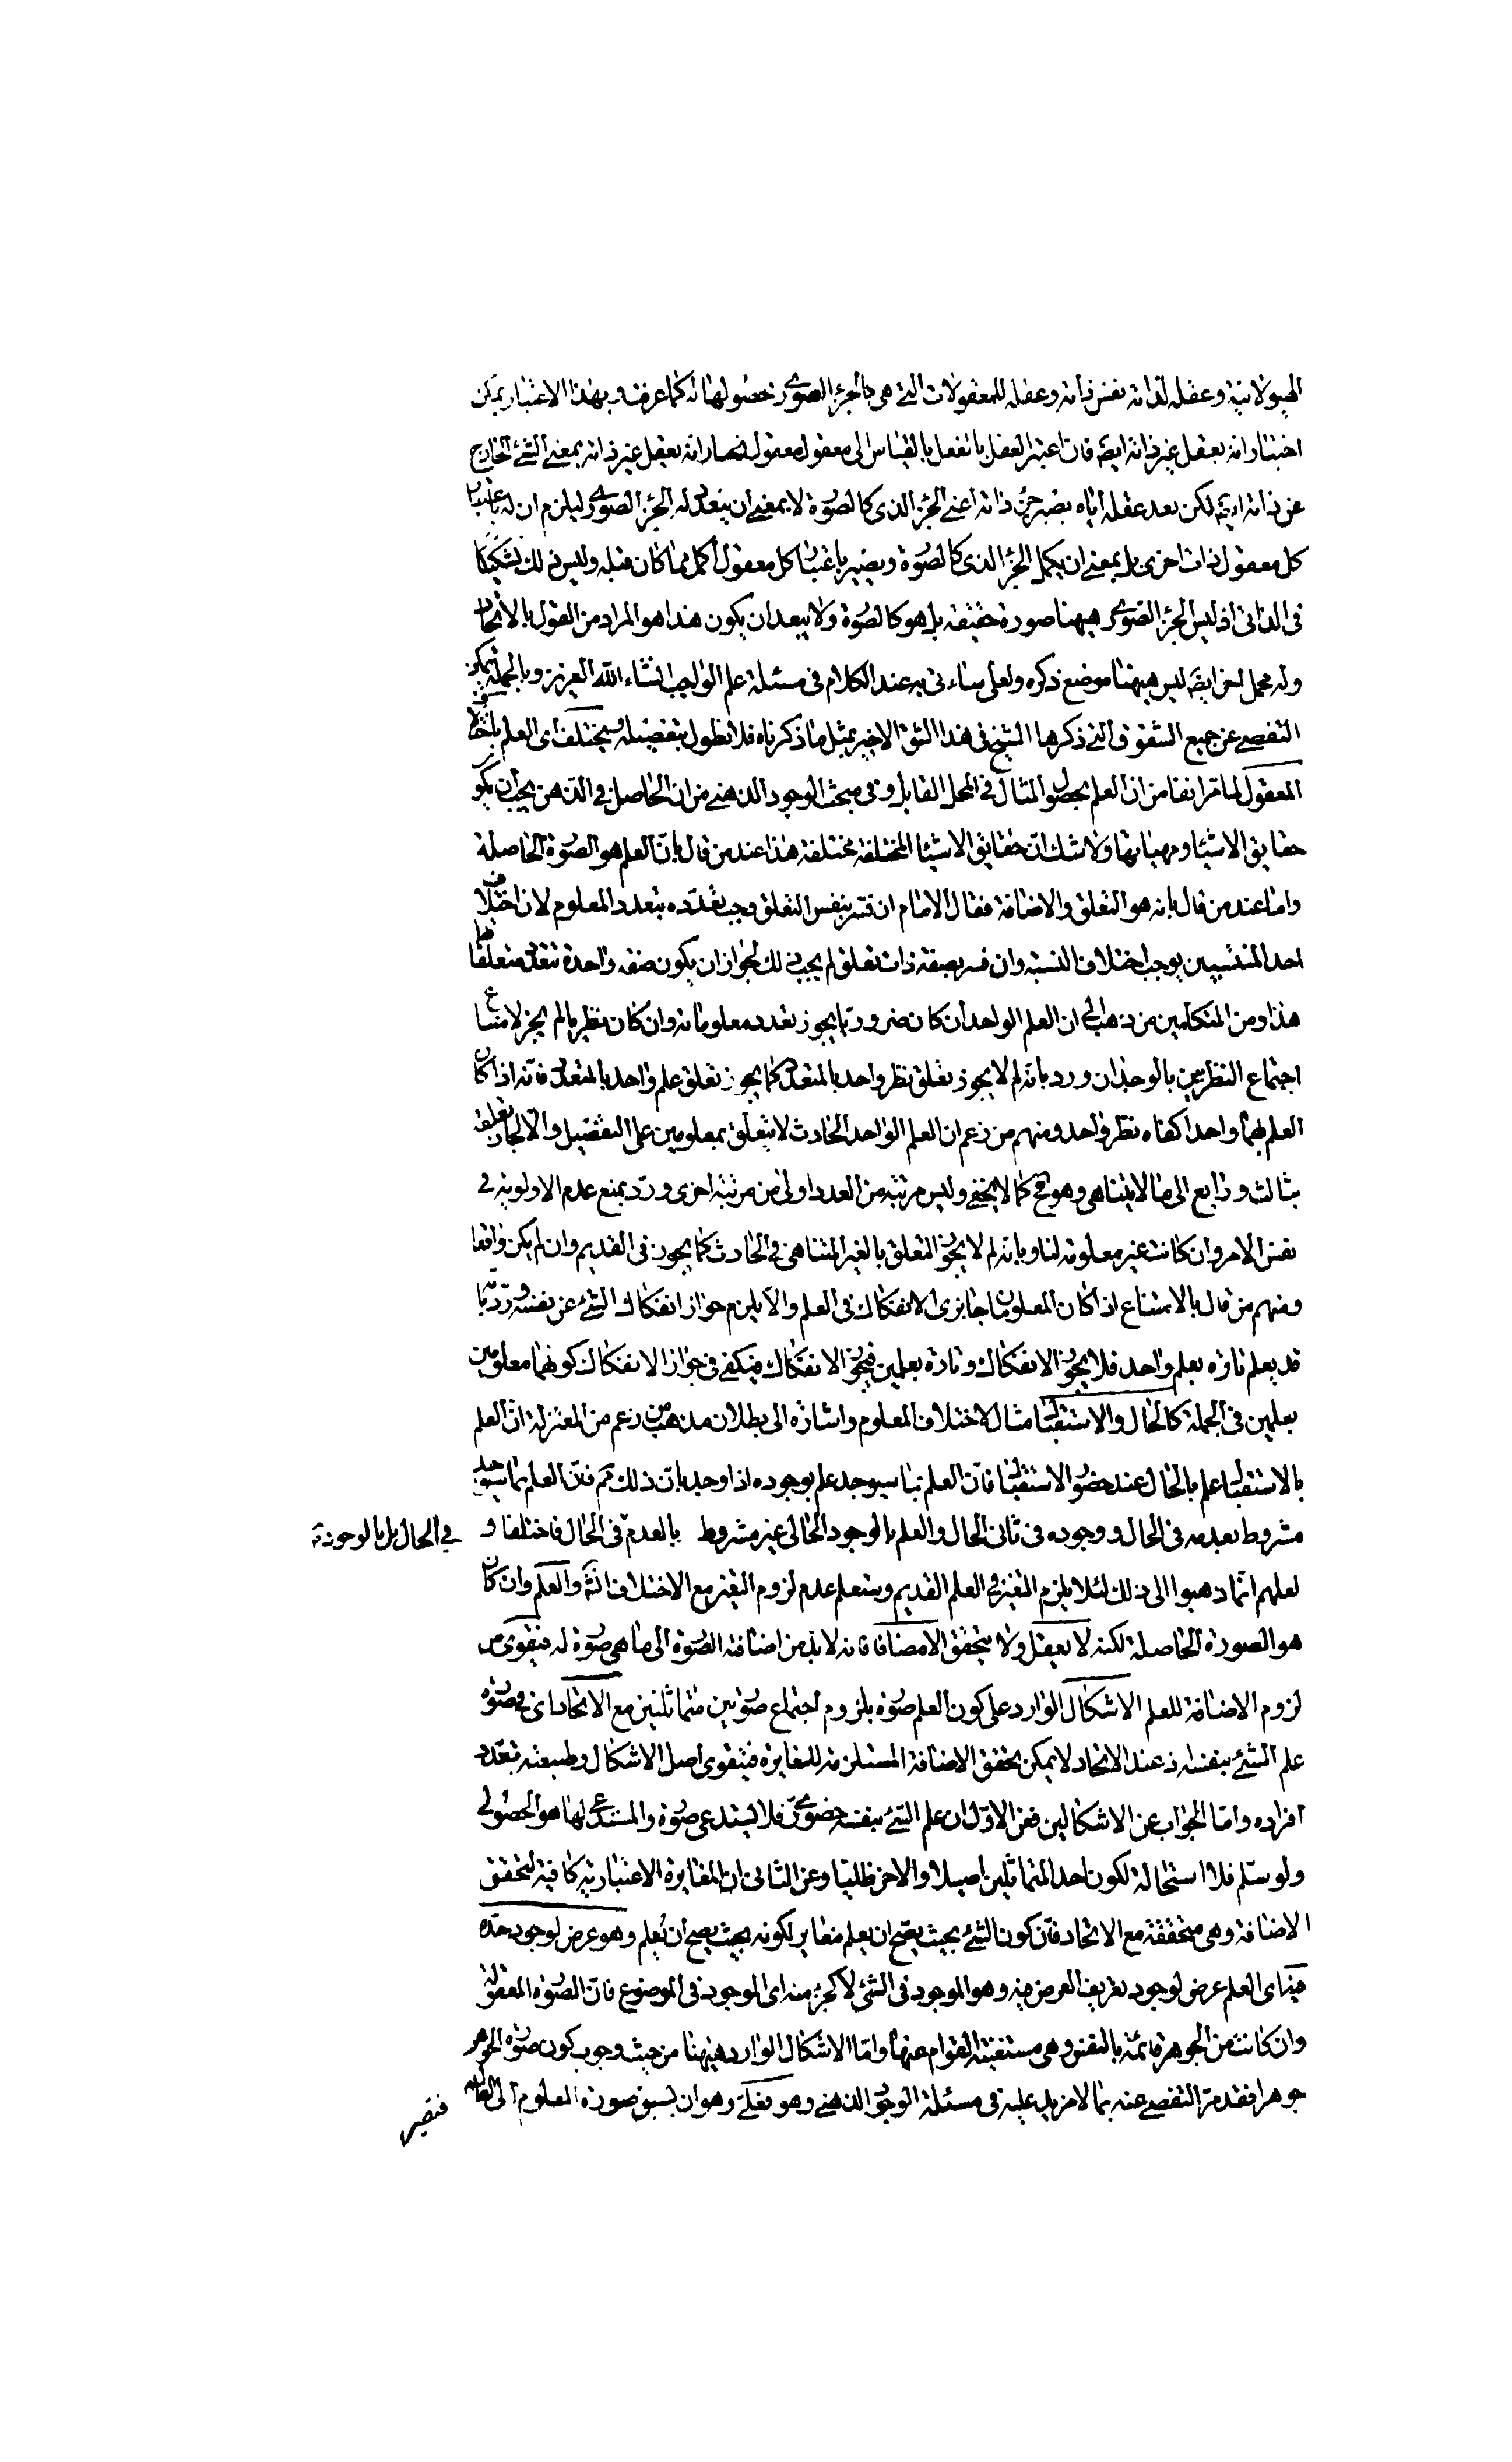 الهيولانية وعقله لذاته نفس ذاته وعقله للمعقولات التى هى كالجزء الصورى حصولها له كما عرفت وبهذا الاعتبار يمكن
اختيار انه يعقل غير ذاته ايضا فان اعتبر العقل بالفعل بالقياس الى معقول معقول فصار انه يعقل غير ذاته بمعنى الشئ الخارج
عن ذاته ايضا لكن بعد عقله اياه يصير جزء ذاته اعنى الجزء الذى كالصورة لا بمعنى ان يتعدد له الجزء الصورى ليلزم ان له باعتبار
كل معقول ذات اخرى بل بمعنى ان يكمل الجزء الذى كالصورة ويصير باعتبار كل معقول اكمل مما كان قبله وليس ذلك تشكيكا
فى الذاتى اذ ليس الجزء الصورى هيهنا صورة حقيقة بل هو كالصورة ولا يبعد ان يكون هذا هو المراد من القول بالاتحاد
وله محمل اخر ايضا ليس هيهنا موضع ذكره ولعلى ساءتى به عند الكلام فى مسئلة علم الواجب انشاء الله العزيز وبالجملة يمكن
التفصى عن جميع الشقوق التى ذكرها الشيخ فى هذا الشق الاخير بمثل ما ذكرناه فلا نطول بتفصيله ويختلف اى العلم باختلاف
المعقول لما مر انفا من ان العلم بحصول المثال فى المحل القابل وفى مبحث الوجود الذهنى من ان الحاصل فى الذهن يجب ان يكون
حقايق الاشياء ومهياتها ولا شك ان حقايق الاشياء المختلفة مختلفة هذا عند من قال بان العلم هو الصورة الحاصلة
واما عند من قال بانه هو التعلق والاضافة فقال الامام ان فسر بنفس التعلق وجب تعدده بتعدد المعلوم لان اختلاف
احد المنتسبين يوجب اختلاف النسبة وان فسر بصفة ذات تعلق لم يجب ذلك لجواز ان يكون صفة واحدة تتعدد متعلقاتها
هذا ومن المتكلمين من ذهب الى ان العلم الواحد ان كان ضروريا يجوز تعدد معلوماته وان كان نظريا لم يجز لامتناع
اجتماع النظريين بالوجدان ورد بانه لم لا يجوز تعلق نظر واحد بالمتعدد كما يجوز تعلق علم واحد بالمتعدد فانه اذا كان
العلم بهما واحدا كفاه نظر واحد ومنهم من زعم ان العلم الواحد الحادث لا يتعلق بمعلومين على التفصيل والا لجاز تعلقه
بثالث ورابع الى ما لا يتناهى وهو مح كما لا يخفى وليس مرتبة من العدد اولى من مرتبة اخرى ورد بمنع عدم الاولوية فى
نفس الامر وان كانت غير معلومة لنا وبانه لم لا يجوز التعلق بالغير المتناهى فى الحادث كما يجوز فى القديم وان لم يكن واقعا
ومنهم من قال بالامتناع اذا كان المعلومان جايزى الانفكاك فى العلم والا يلزم جواز انفكاك الشئ عن نفسه ورد بانه
قد يعلم تارة بعلم واحد فلا يجوز الانفكاك وتارة بعلمين فيجوز الانفكاك فيكفى فى جواز الانفكاك كونهما معلومين
بعلمين فى الجملة كالحال والاستقبال مثال لاختلاف المعلوم واشارة الى بطلان مذهب من زعم من المعتزلة ان العلم
بالاستقبال علم بالحال عند حضور الاستقبال فان العلم بما سيوجد علم بوجوده اذا وجد بان ذلك فان العلم بما سيوجد
مشروط بعدمه فى الحال ووجوده فى ثانى الحال والعلم بالوجود الحالى غير مشروط بالعدم فى الحال فاختلفا و
فى الحال بل بالوجود
لعلهم انما ذهبوا الى ذلك لئلا يلزم التغير فى العلم القديم وستعلم عدم لزوم التغير مع الاختلاف ايضا والعلم وان كان
هو الصورة الحاصلة لكنه لا يعقل ولا يتحقق الا مضافا فانه لا بد من اضافة الصورة الى ما هى صورة له فيقوى من
لزوم الاضافة للعلم الاشكال الوارد على كون العلم صورة بلزوم اجتماع صورتين متماثلتين مع الاتحاد اى فى صورة
علم الشئ بنفسه اذ عند الاتحاد لا يمكن تحقق الاضافة المستلزمة للمغايرة فيتقوى اصل الاشكال وطبيعته بتعدد
افراده واما الجواب عن الاشكالين فعن الاول ان علم الشئ بنفسه حضورى فلا يستدعى صورة والمستدعى لها هو الحصولى
ولو سلم فلا استحالة لكون احد المتماثلين اصيلا والاخر ظليا وعن الثانى ان المغايرة الاعتبارية كافية لتحقق
الاضافة وهى متحققة مع الاتحاد فان كون الشئ بحيث يصح ان يعلم مغاير لكونه بحيث يصح ان يُعلم وهو عرض لوجود حده
فيه اى العلم عرض لوجود تعريف العرض فيه وهو الموجود فى الشئ لا كجزء منه اى الموجود فى الموضوع فان الصورة المعقولة
وان كانت من الجوهر قائمة بالنفس وهى مستغنية القوام عنها واما الاشكال الوارد هيهنا من حيث وجوب كون صورة الجوهر
جوهرا فقد مر التفصى عنه بما لا مزيد عليه فى مسئلة الوجود الذهنى وهو فعلى وهو ان يسبق صورة المعلوم الى العالم
فتصير